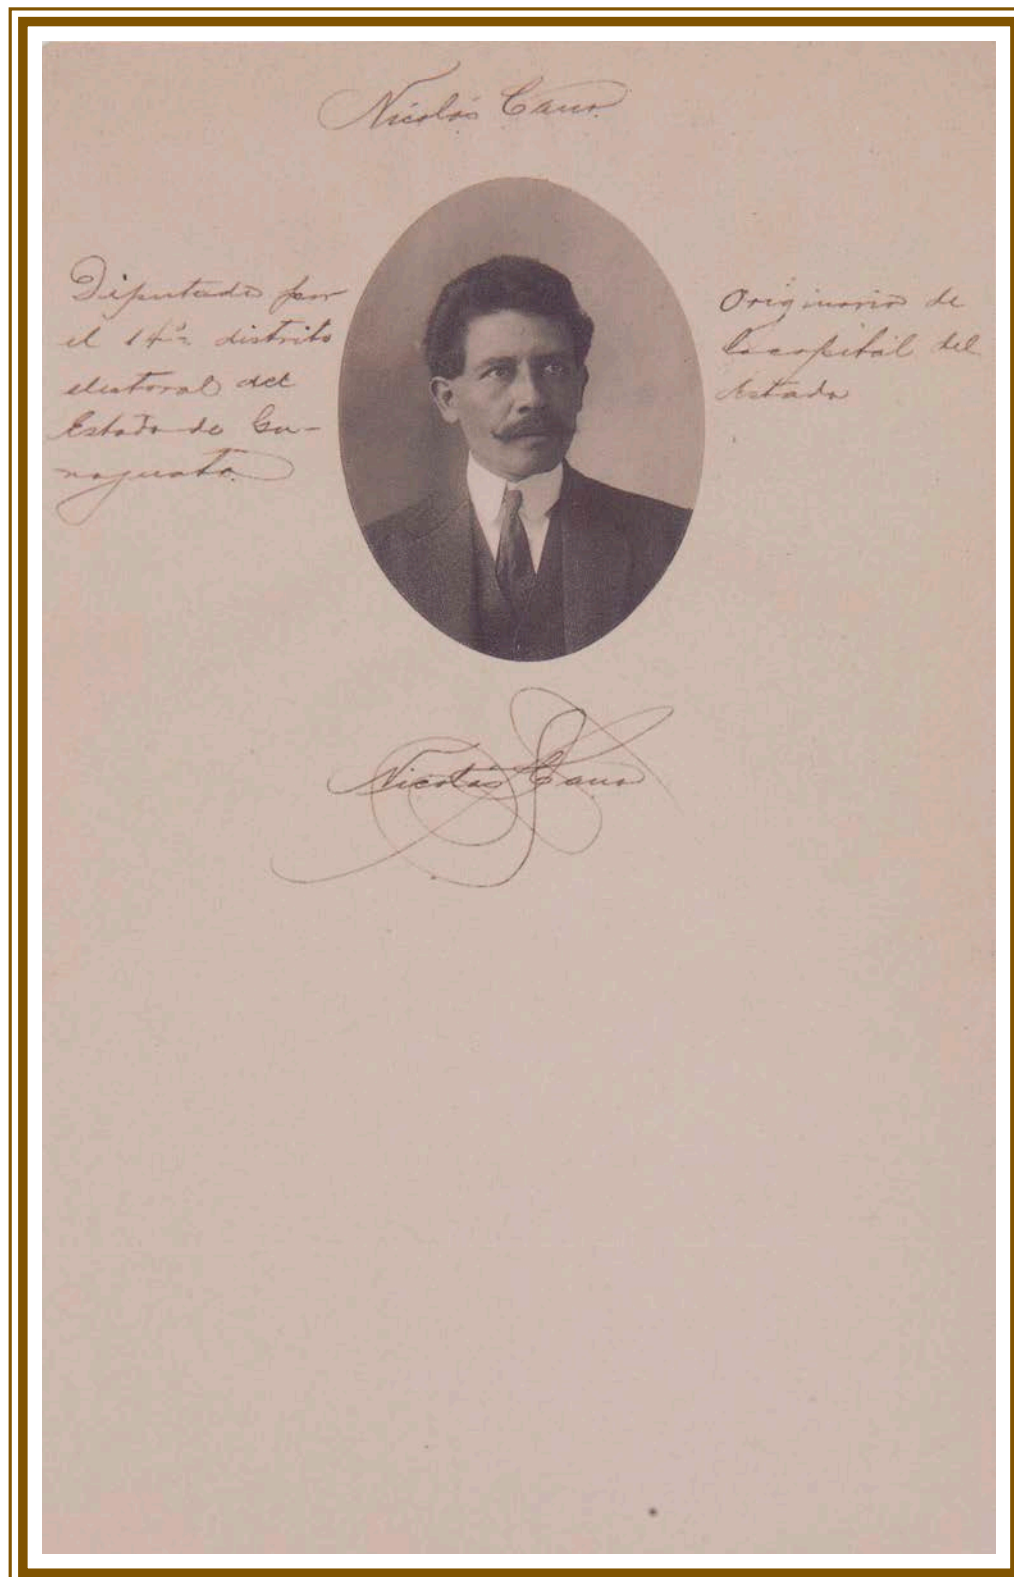 Nicolás Cano
Diputado por
el 14º distrito
electoral del
Estado de Gu-
najuato.
Originario de
la capital del
Estado
Nicolás Cano